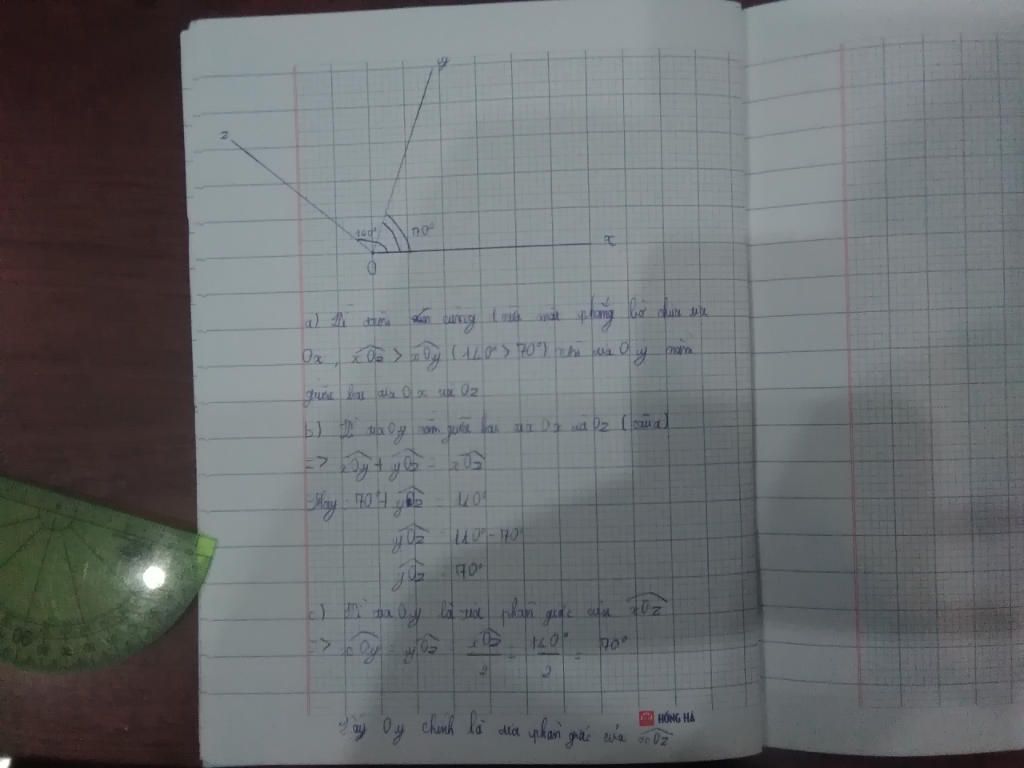 y
z
140° 70°
x
O
a) Vì trên cùng 1 nửa mặt phẳng bờ chứa tia
Ox, xOz > xOy (140° > 70°) nên tia Oy nằm
giữa hai tia Ox và Oz
b) Vì tia Oy nằm giữa hai tia Ox và Oz (câu a)
=> xOy + yOz = xOz
Hay 70° + yOz = 140°
yOz = 140° - 70°
yOz = 70°
c) Vì tia Oy là tia phân giác của xOz
=> xOy = yOz = xOz/2 = 140°/2 = 70°
HỒNG HÀ
Vậy Oy chính là tia phân giác của xOz